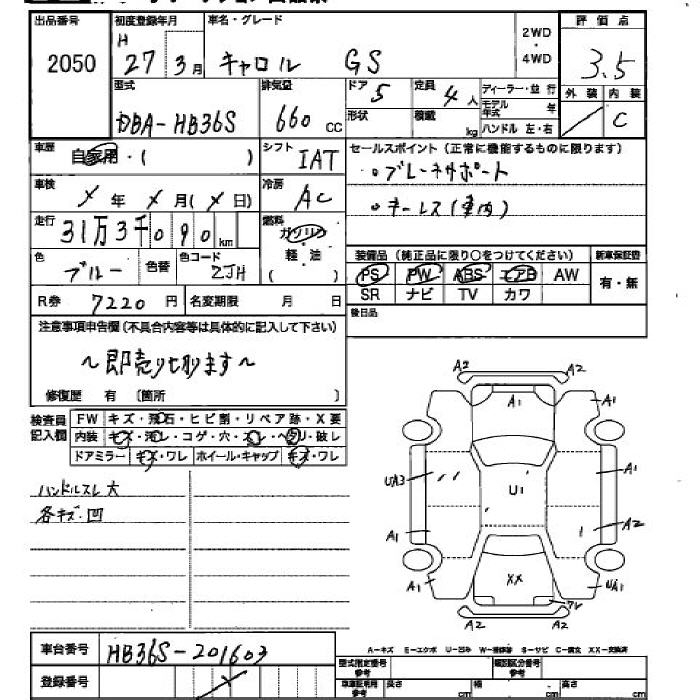 出品番号 初度登録年月 車名・グレード 2WD・4WD 評価点
2050 H 27 3月 キャロル GS 3.5
型式 排気量 ドア 5 定員 4人 ディーラー・並行 外装 内装
DBA-HB36S 660 cc 形状 積載 kg モデル年式 年 C
ハンドル 左・右
車歴 自家用・( ) シフト IAT セールスポイント(正常に機能するものに限ります)
○ブレーキサポート
車検 メ年 メ月(メ日) 冷房 AC ○キーレス(車内)
走行 31万3千090km 燃料 ガソリン 軽・油 ( )
装備品(純正品に限り○をつけてください) 新車保証書
色 ブルー 色替 色コード ZJH PS PW ABS エアB AW 有・無
R券 7220円 名変期限 月 日 SR ナビ TV カワ
後日品
注意事項申告欄(不具合内容等は具体的に記入して下さい)
〜即売り切ります〜
修復歴 有 〔箇所 〕
検査員記入欄 FW キズ・飛石・ヒビ割・リペア跡・X要
内装 キズ・汚レ・コゲ・穴・スレ・ヘタリ・破レ
ドアミラー キズ・ワレ ホイール・キャップ キズ・ワレ
ハンドルスレ大
各キズ・凹
A2 A2
A1 A1
UA3 U1 A1
A1 A2
A1 XX UA1
A2 A2
A-キズ E-エクボ U-凹み W-補修跡 S-サビ C-腐食 XX-交換済
車台番号 HB36S-201603
型式指定番号 参考 類別区分番号 参考
登録番号 車庫証明用 参考 長さ cm 幅 cm 高さ cm